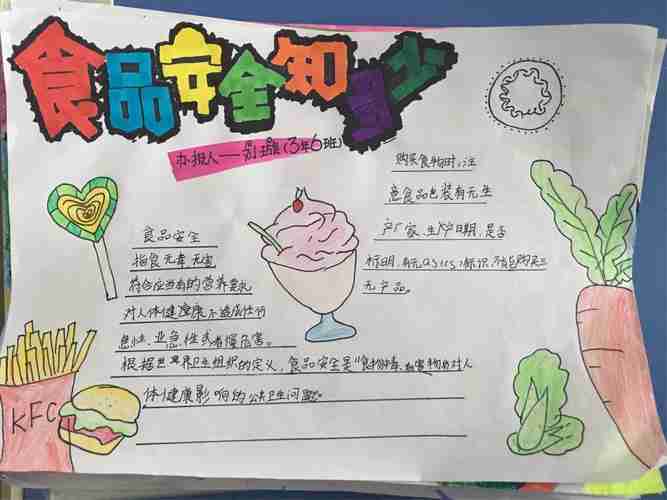 食品安全知多少
办报人——(3年6班)
购买食物时,注
意食品包装有无生
产厂家、生产日期,是否
标明,有无QS标识,不购买三
无产品。
食品安全
指食无毒、无害
符合应当有的营养要求
对人体健康不造成任何
急性、亚急性或者慢危害。
根据世界卫生组织的定义,食品安全是"食物中毒、有害物质对人
体健康影响的公共卫生问题。
KFC